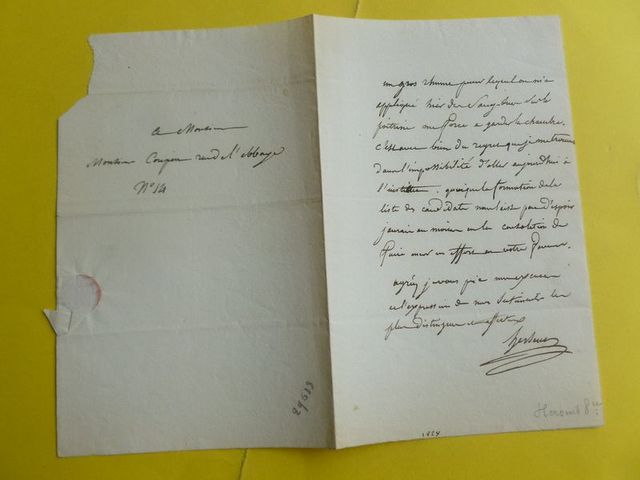 a Monsieur
Monsieur Coupin rue de l'abbaye
N° 14
29633
un gros rhume pour lequel on m'a
appliqué hier des Sangsues sur la
poitrine me force a garder la chambre.
c'est avec bien du regret que je me trouve
dans l'impossibilité d'aller aujourd'hui à
l'institut. quoique la formation de la
liste des candidats me laisse peu d'espoir
j'aurais au moins eu la consolation de
faire encor un effort en votre faveur.
agréez je vous prie mon
et l'expression de mes Sentiments les
plus distingués et affectueux
hersent
1824
Hersent